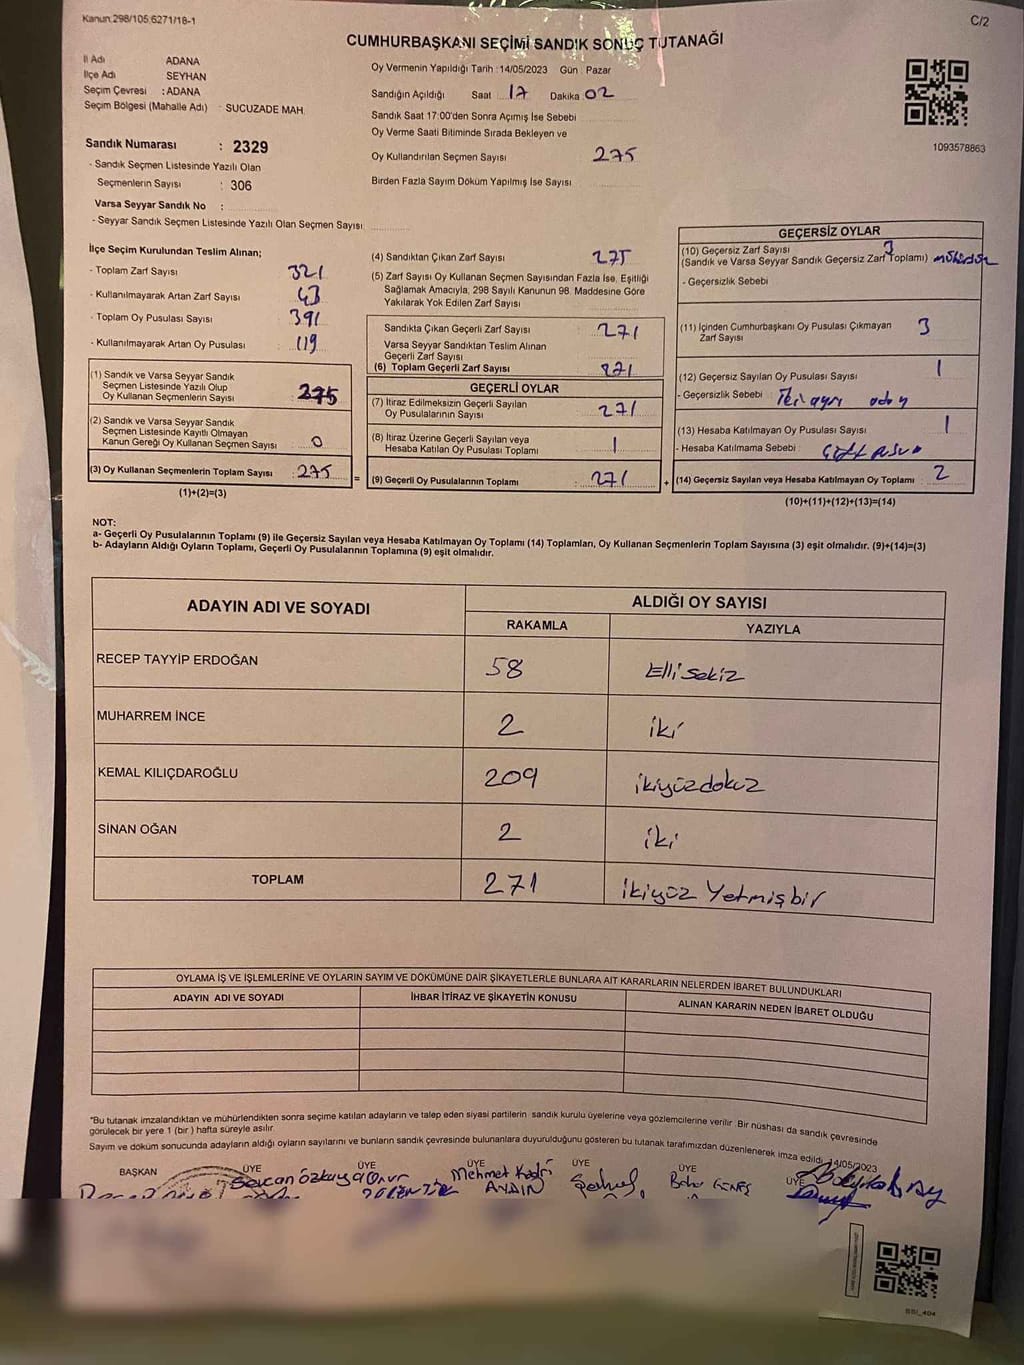 Kanun:298/105:6271/18-1
C/2
CUMHURBAŞKANI SEÇİMİ SANDIK SONUÇ TUTANAĞI
İl Adı ADANA
İlçe Adı SEYHAN
Seçim Çevresi : ADANA
Seçim Bölgesi (Mahalle Adı) : SUCUZADE MAH.
Sandık Numarası : 2329
- Sandık Seçmen Listesinde Yazılı Olan
Seçmenlerin Sayısı : 306
Varsa Seyyar Sandık No :
- Seyyar Sandık Seçmen Listesinde Yazılı Olan Seçmen Sayısı
Oy Vermenin Yapıldığı Tarih :14/05/2023 Gün : Pazar
Sandığın Açıldığı Saat 17 Dakika 02
Sandık Saat 17:00'den Sonra Açımış İse Sebebi
Oy Verme Saati Bitiminde Sırada Bekleyen ve
Oy Kullandırılan Seçmen Sayısı 275
Birden Fazla Sayım Döküm Yapılmış İse Sayısı
1093578863
İlçe Seçim Kurulundan Teslim Alınan;
- Toplam Zarf Sayısı 321
- Kullanılmayarak Artan Zarf Sayısı 43
- Toplam Oy Pusulası Sayısı 391
- Kullanılmayarak Artan Oy Pusulası 119
(1) Sandık ve Varsa Seyyar Sandık
Seçmen Listesinde Yazılı Olup
Oy Kullanan Seçmenlerin Sayısı 275
(2) Sandık ve Varsa Seyyar Sandık
Seçmen Listesinde Kayıtlı Olmayan
Kanun Gereği Oy Kullanan Seçmen Sayısı 0
(3) Oy Kullanan Seçmenlerin Toplam Sayısı : 275 =
(1)+(2)=(3)
(4) Sandıktan Çıkan Zarf Sayısı 275
(5) Zarf Sayısı Oy Kullanan Seçmen Sayısından Fazla İse, Eşitliği
Sağlamak Amacıyla, 298 Sayılı Kanunun 98. Maddesine Göre
Yakılarak Yok Edilen Zarf Sayısı
Sandıkta Çıkan Geçerli Zarf Sayısı 271
Varsa Seyyar Sandıktan Teslim Alınan
Geçerli Zarf Sayısı
(6) Toplam Geçerli Zarf Sayısı 271
GEÇERLİ OYLAR
(7) İtiraz Edilmeksizin Geçerli Sayılan
Oy Pusulalarının Sayısı 271
(8) İtiraz Üzerine Geçerli Sayılan veya
Hesaba Katılan Oy Pusulası Toplamı 1
(9) Geçerli Oy Pusulalarının Toplamı : 271 +
GEÇERSİZ OYLAR
(10) Geçersiz Zarf Sayısı 3
(Sandık ve Varsa Seyyar Sandık Geçersiz Zarf Toplamı) mühürsüz
- Geçersizlik Sebebi
(11) İçinden Cumhurbaşkanı Oy Pusulası Çıkmayan 3
Zarf Sayısı
(12) Geçersiz Sayılan Oy Pusulası Sayısı 1
- Geçersizlik Sebebi : İki ayrı aday
(13) Hesaba Katılmayan Oy Pusulası Sayısı 1
- Hesaba Katılmama Sebebi :
(14) Geçersiz Sayılan veya Hesaba Katılmayan Oy Toplamı : 2
(10)+(11)+(12)+(13)=(14)
NOT:
a- Geçerli Oy Pusulalarının Toplamı (9) ile Geçersiz Sayılan veya Hesaba Katılmayan Oy Toplamı (14) Toplamları, Oy Kullanan Seçmenlerin Toplam Sayısına (3) eşit olmalıdır. (9)+(14)=(3)
b- Adayların Aldığı Oyların Toplamı, Geçerli Oy Pusulalarının Toplamına (9) eşit olmalıdır.
ADAYIN ADI VE SOYADI
ALDIĞI OY SAYISI
RAKAMLA YAZIYLA
RECEP TAYYİP ERDOĞAN 58 Elli sekiz
MUHARREM İNCE 2 iki
KEMAL KILIÇDAROĞLU 209 ikiyüzdokuz
SİNAN OĞAN 2 iki
TOPLAM 271 ikiyüz Yetmişbir
OYLAMA İŞ VE İŞLEMLERİNE VE OYLARIN SAYIM VE DÖKÜMÜNE DAİR ŞİKAYETLERLE BUNLARA AİT KARARLARIN NELERDEN İBARET BULUNDUKLARI
ADAYIN ADI VE SOYADI İHBAR İTİRAZ VE ŞİKAYETİN KONUSU ALINAN KARARIN NEDEN İBARET OLDUĞU
*Bu tutanak imzalandıktan ve mühürlendikten sonra seçime katılan adayların ve talep eden siyasi partilerin sandık kurulu üyelerine veya gözlemcilerine verilir. Bir nüshası da sandık çevresinde
görülecek bir yere 1 (bir) hafta süreyle asılır.
Sayım ve döküm sonucunda adayların aldığı oyların sayılarını ve bunların sandık çevresinde bulunanlara duyurulduğunu gösteren bu tutanak tarafımızdan düzenlenerek imza edildi. 14/05/2023
BAŞKAN ÜYE ÜYE ÜYE ÜYE ÜYE ÜYE
Sevcan Onur Mehmet Kadri
AYDIN
BSI_404